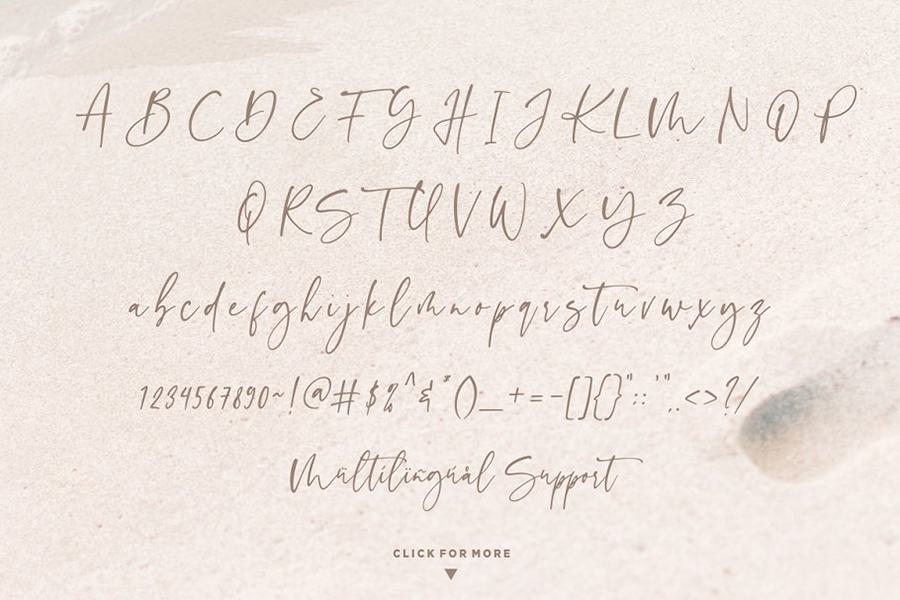 A B C D E F G H I J K L M N O P
Q R S T U V W X Y Z
a b c d e f g h i j k l m n o p q r s t u v w x y z
1234567890~!@#$%^&*()_+=-[]{}":;'",.<>?/
Mültilïngûål Support
CLICK FOR MORE